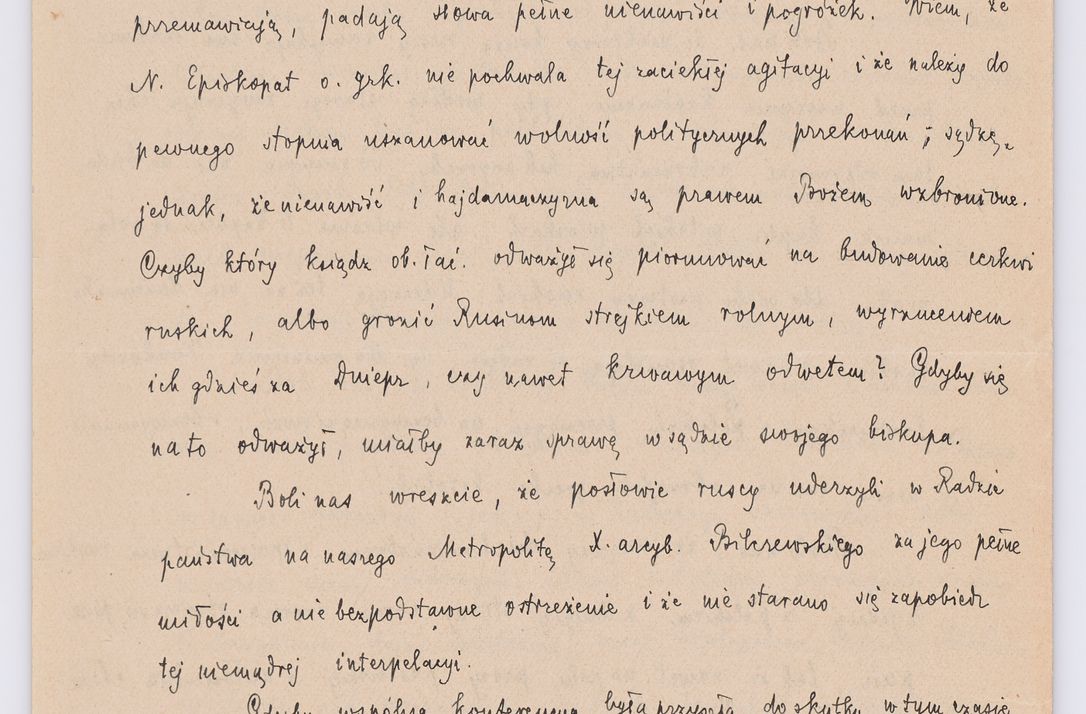 przemawiają, padają słowa pełne nienawiści i pogróżek. Wiem, że
N. Episkopat o. grk. nie pochwala tej zaciekłej agitacyi i że należy do
pewnego stopnia uszanować wolność politycznych przekonań; sądzę,
jednak, że nienawiść i hajdamaczyzna są prawem Bożem wzbronione.
Czyby który ksiądz ob. łać. odważył się piorunować na budowanie cerkwi
ruskich, albo grozić Rusinom strejkiem rolnym, wyrzuceniem
ich gdzieś za Dniepr, czy nawet krwawym odwetem? Gdyby się
na to odważył, miałby zaraz sprawę w sądzie swojego biskupa.
Boli nas wreszcie, że posłowie ruscy uderzyli w Radzie
państwa na naszego Metropolitę X. arcyb. Bilczewskiego za jego pełne
miłości a nie bezpodstawne ostrzeżenie i że nie starano się zapobiedz
tej niemądrej interpelacyi.
Gdyby wspólna konferencya była przyszła do skutku w tym czasie